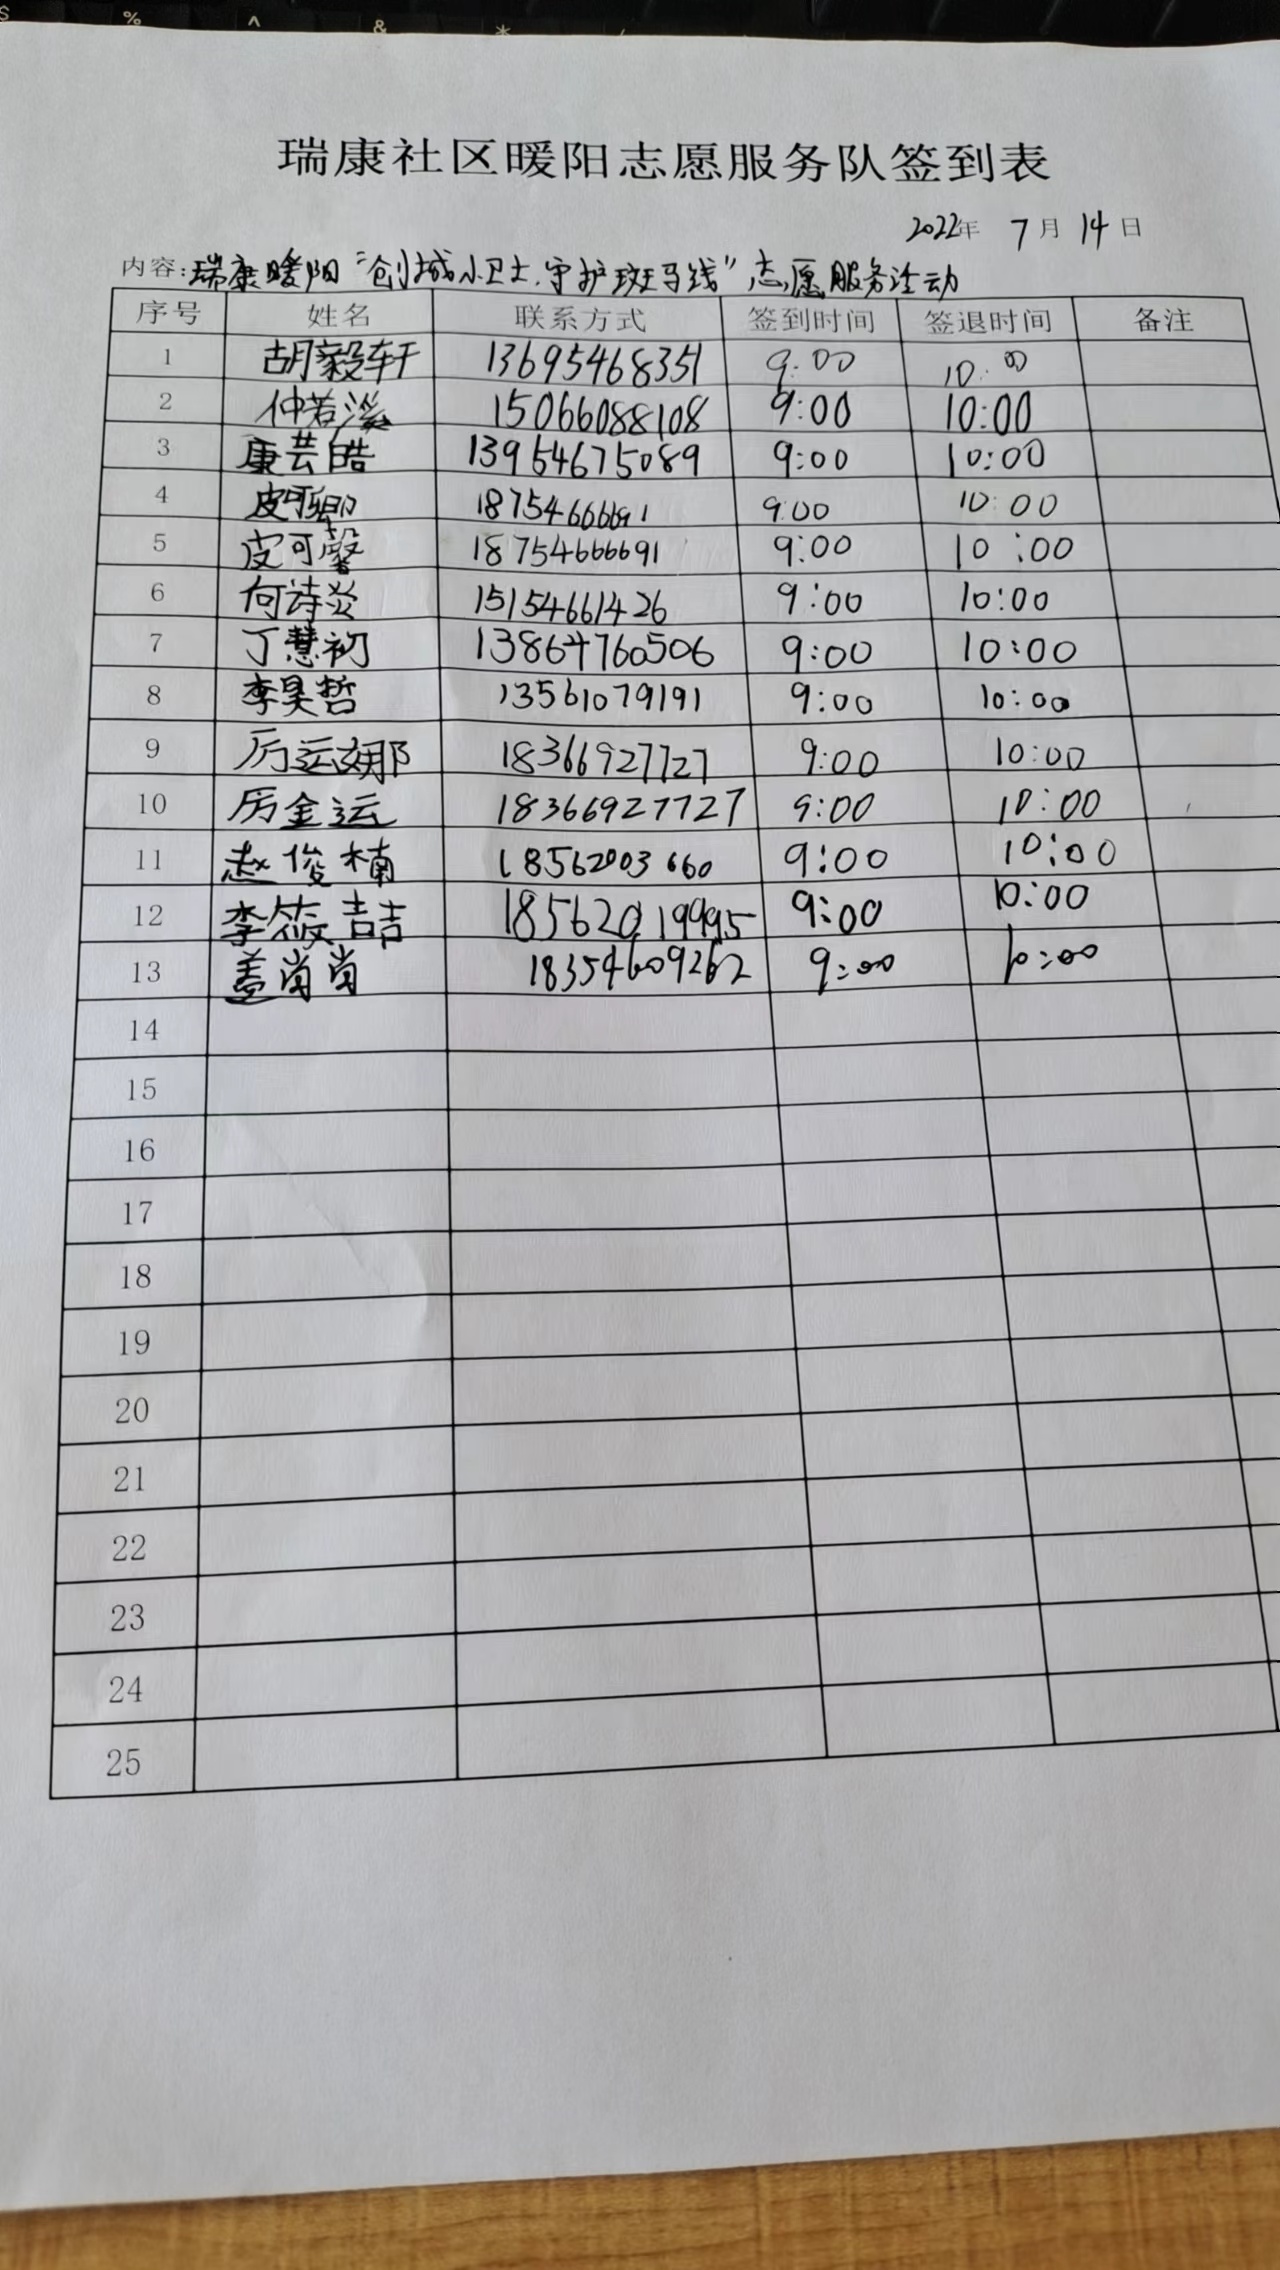 瑞康社区暖阳志愿服务队签到表
2022年 7月 14日
内容:瑞康暖阳“创城小卫士,守护斑马线”志愿服务活动
序号 姓名 联系方式 签到时间 签退时间 备注
1 胡毅轩 13695468351 9:00 10:00
2 仲若溪 15066088108 9:00 10:00
3 康芸皓 13954675089 9:00 10:00
4 皮可卿 18754666691 9:00 10:00
5 皮可馨 18754666691 9:00 10:00
6 何诗炎 15154661426 9:00 10:00
7 丁慧初 13864760506 9:00 10:00
8 李昊哲 13561079191 9:00 10:00
9 厉运娜 18366927727 9:00 10:00
10 厉金运 18366927727 9:00 10:00
11 赵俊楠 18562003660 9:00 10:00
12 李筱喆 18562019995 9:00 10:00
13 盖肖肖 18354609262 9:00 10:00
14
15
16
17
18
19
20
21
22
23
24
25